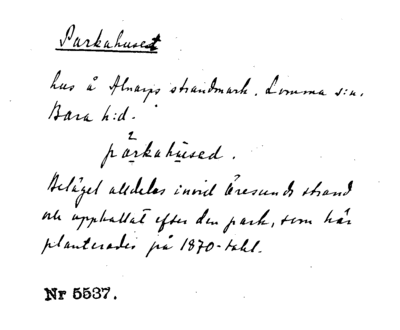 Parkahuset
hus å Alnarps strandmark. Lomma s:n.
Bara h:d.
2
parkahused.
Beläget alldeles invid Öresunds strand
och uppkallat efter den park, som här
planterades på 1870-talet.
Nr 5537.